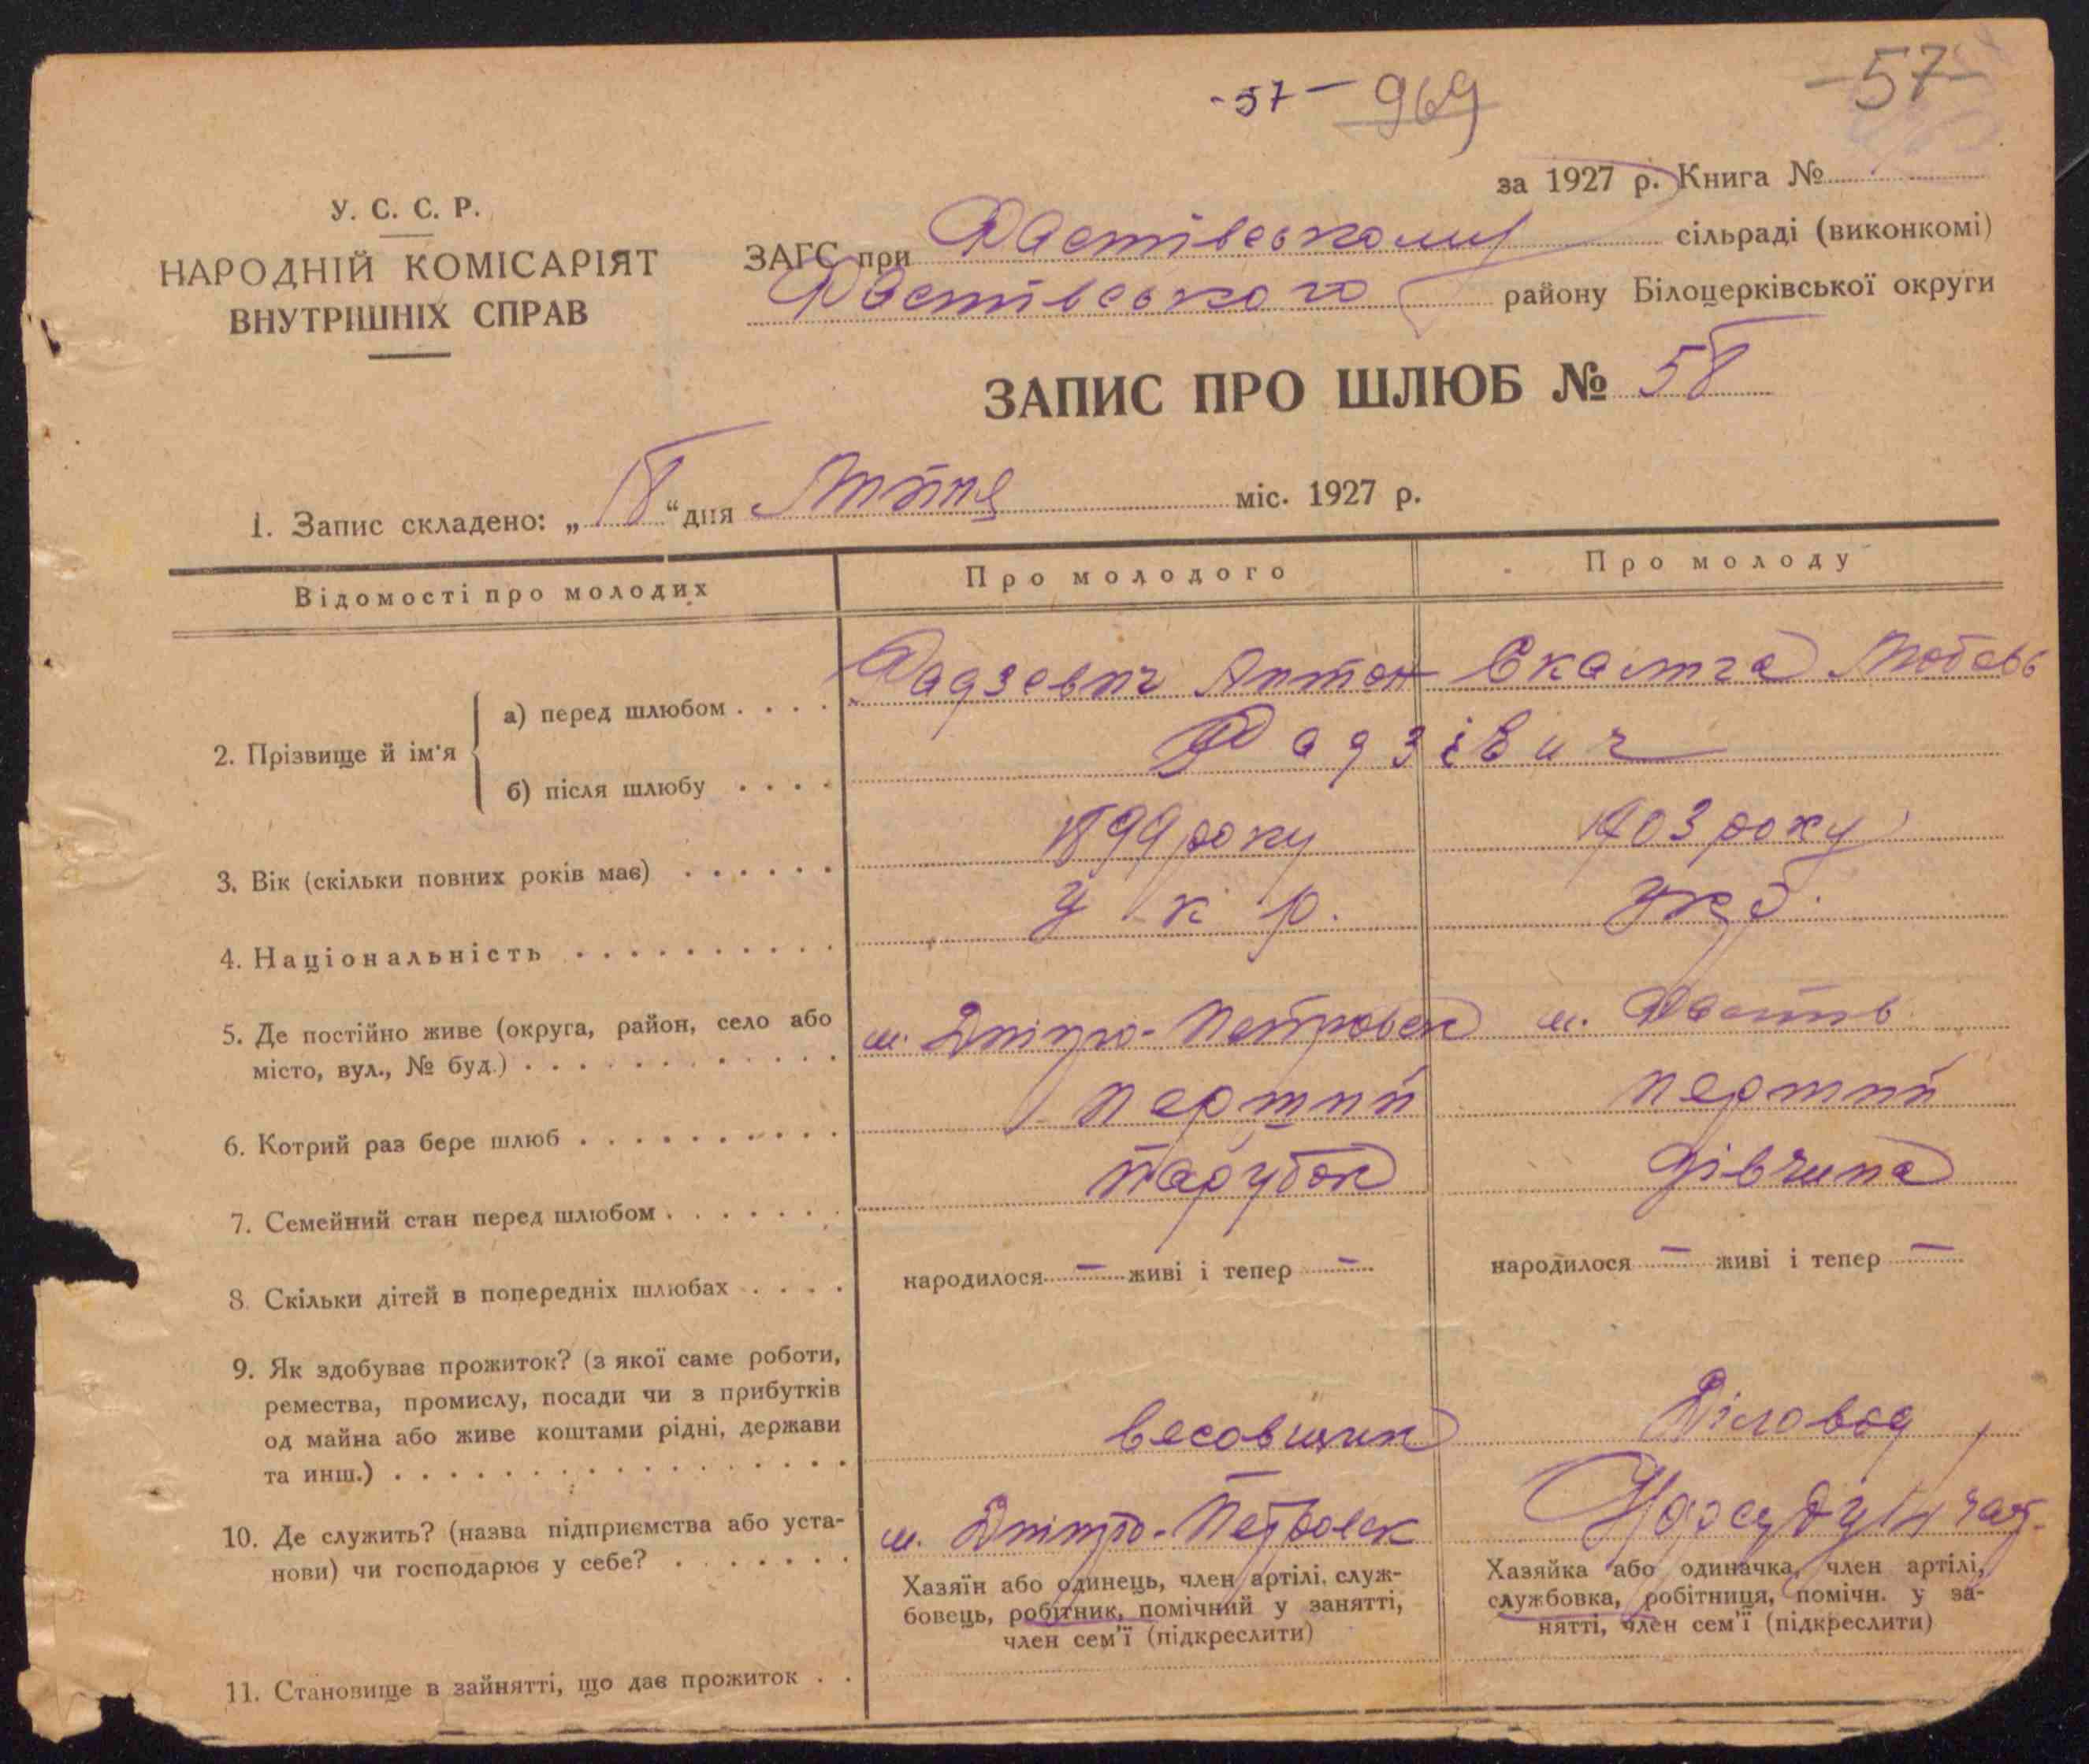 -57- 969 -57-
за 1927 р. Книга №
У. С. С. Р.
НАРОДНІЙ КОМІСАРІЯТ
ВНУТРІШНІХ СПРАВ
ЗАГС при Фастівському сільраді (виконкомі)
Фастівського району Білоцерківської округи
ЗАПИС ПРО ШЛЮБ № 58
1. Запис складено: „18“ дня міс. 1927 р.
Відомості про молодих Про молодого Про молоду
2. Прізвище й ім'я
а) перед шлюбом . . . . Радзевич Антон Скалига Любовь
б) після шлюбу . . . . Радзівич
3. Вік (скільки повних років має) . . . . . . 1899 року 1903 року
4. Національність . . . . . . . . . . укр. укр.
5. Де постійно живе (округа, район, село або
місто, вул., № буд.) . . . . . . . . . . . . м. Дніпро-Петровск м. Фастів
6. Котрий раз бере шлюб . . . . . . . . . . перший перший
7. Семейний стан перед шлюбом . . . . . . . парубок дівчина
8. Скільки дітей в попередніх шлюбах . . . . народилося — живі і тепер — народилося — живі і тепер —
9. Як здобуває прожиток? (з якої саме роботи,
ремества, промислу, посади чи з прибутків
од майна або живе коштами рідні, держави
та инш.) . . . . . . . . . . . . . . . . . весовщик Діловод
10. Де служить? (назва підприємства або уста-
нови) чи господарює у себе? . . . . . . . м. Дніпро-Петровск
Хазяїн або одинець, член артілі, служ-
бовець, робітник, помічний у занятті,
член сем'ї (підкреслити)
Хазяйка або одиначка, член артілі,
службовка, робітниця, помічн. у за-
нятті, член сем'ї (підкреслити)
11. Становище в зайнятті, що дає прожиток . .